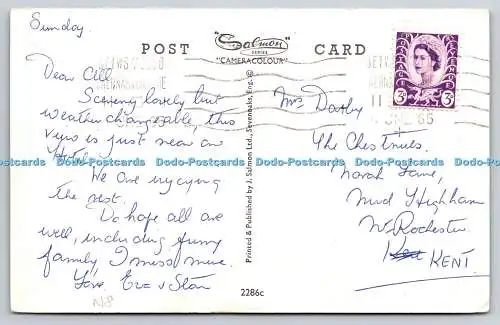 Sunday.
POST CARD
Salmon
SERIES
"CAMERACOLOUR"
Dear All
Scenery lovely but
weather changeable, this
view is just near our
Hotel
We are enjoying
the rest.
Do hope all are
well, including furry
family I miss mine.
Eve & Stan
Mrs Darby
The Chestnuts.
Marsh Lane,
Mid Higham
Nr Rochester
Kent KENT.
3D 3D
11
65
Printed & Published by J. Salmon Ltd., Sevenoaks, Eng. ©
2286c
N/8
Dodo-Postcards Dodo-Postcards Dodo-Postcards Dodo-Postcards Dodo-Postcards Dodo-Postcards